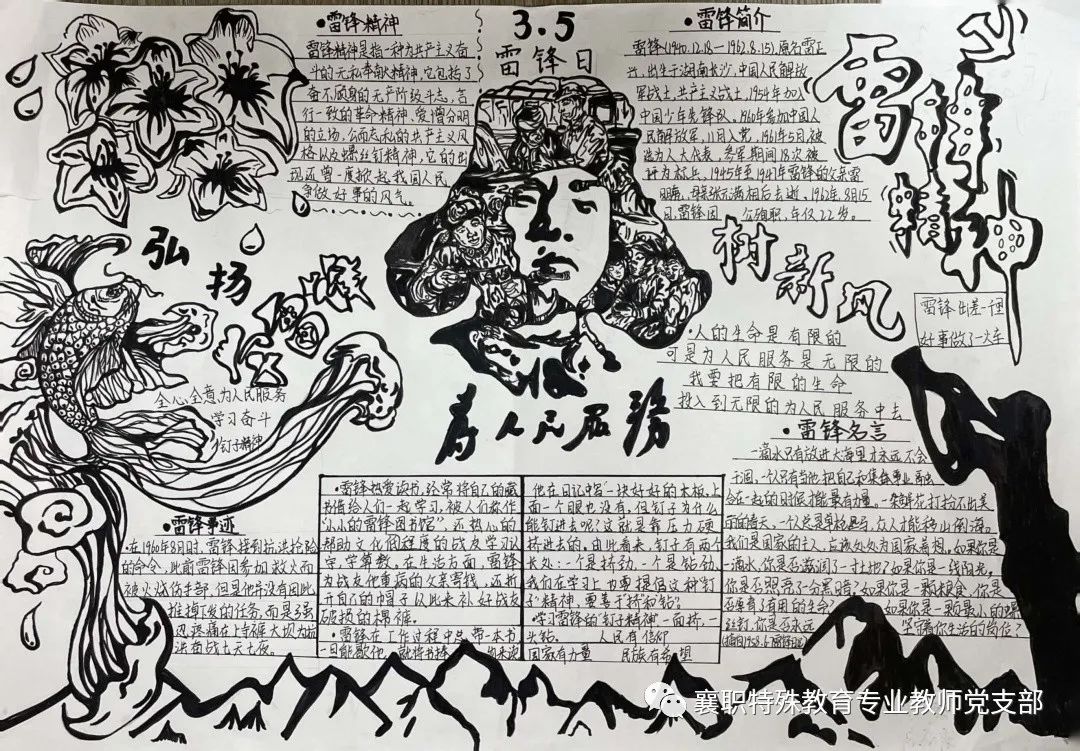 雷锋精神
雷锋精神是指一种为共产主义奋
斗的无私奉献精神,它包括了
奋不顾身的无产阶级斗志,言
行一致的革命精神,爱憎分明
的立场,公而忘私的共产主义风
格以及螺丝钉精神,它的出
现还曾一度掀起我国人民
争做好事的风气。
3.5
雷锋日
雷锋简介
雷锋(1940.12.18—1962.8.15),原名雷正
兴,出生于湖南长沙,中国人民解放
军战士,共产主义战士,1954年加入
中国少年先锋队,1960年参加中国人
民解放军,11月入党,1961年5月被
选为人大代表,参军期间18次被
评为标兵,1945年至1947年雷锋的父亲雷
明亮,母亲张元满相后去逝,1962年8月15
日,雷锋因 公殉职,年仅22岁。
雷锋精神
弘扬
树新风
雷锋出差一里
好事做了一火车
全心全意为人民服务
学习奋斗
钉子精神
人的生命是有限的
可是为人民服务是无限的
我要把有限的生命
投入到无限的为人民服务中去
为人民服务
雷锋名言
一滴水只有放进大海里才永远不会
干涸,一个人只有当他把自己和集体事业融
合在一起的时候才能最有力量。一朵鲜花打扮不出美
丽的春天,一个人总是单枪匹马,众人才能移山倒海。
我们是国家的主人,应该处处为国家着想。如果你是
一滴水,你是否滋润了一寸土地?如果你是一线阳光,
你是否照亮了一分黑暗?如果你是一颗粮食,你是
否哺育了有用的生命? 如果你是一颗最小的螺
丝钉,你是否永远 坚守着你生活的岗位?
雷锋事迹
在1960年8月时,雷锋接到抗洪抢险
的命令,此前雷锋因参加救火而
被火烧伤手部,但是他并没有因此
推掉下发的任务,而是强
忍疼痛在上寺水库大坝为抗
洪奋战七天七夜。
雷锋热爱读书,经常将自己的藏
书借给人们一起学习,被人们称作
“小小的雷锋图书馆”还热心的
帮助文化低程度的战友学习认
字,学算数。在生活方面,雷锋
为战友他重病的父亲寄钱,还拆
开自己的帽子从此来补好战友
破损的棉裤。
雷锋在工作过程中总带一本书
他在日记中写“一块好好的木板,上
面一个眼也没有,但钉子为什么
能钉进去呢?这就是靠压力硬
挤进去的。由此看来,钉子有两个
长处:一个是挤劲,一个是钻劲,
我们在学习上也要提倡这种“钉
子”精神,要善于挤和钻。”
学习雷锋的钉子精神,一面挤,一
头钻。 人民有信仰
国家有力量 民族有希望
襄职特殊教育专业教师党支部